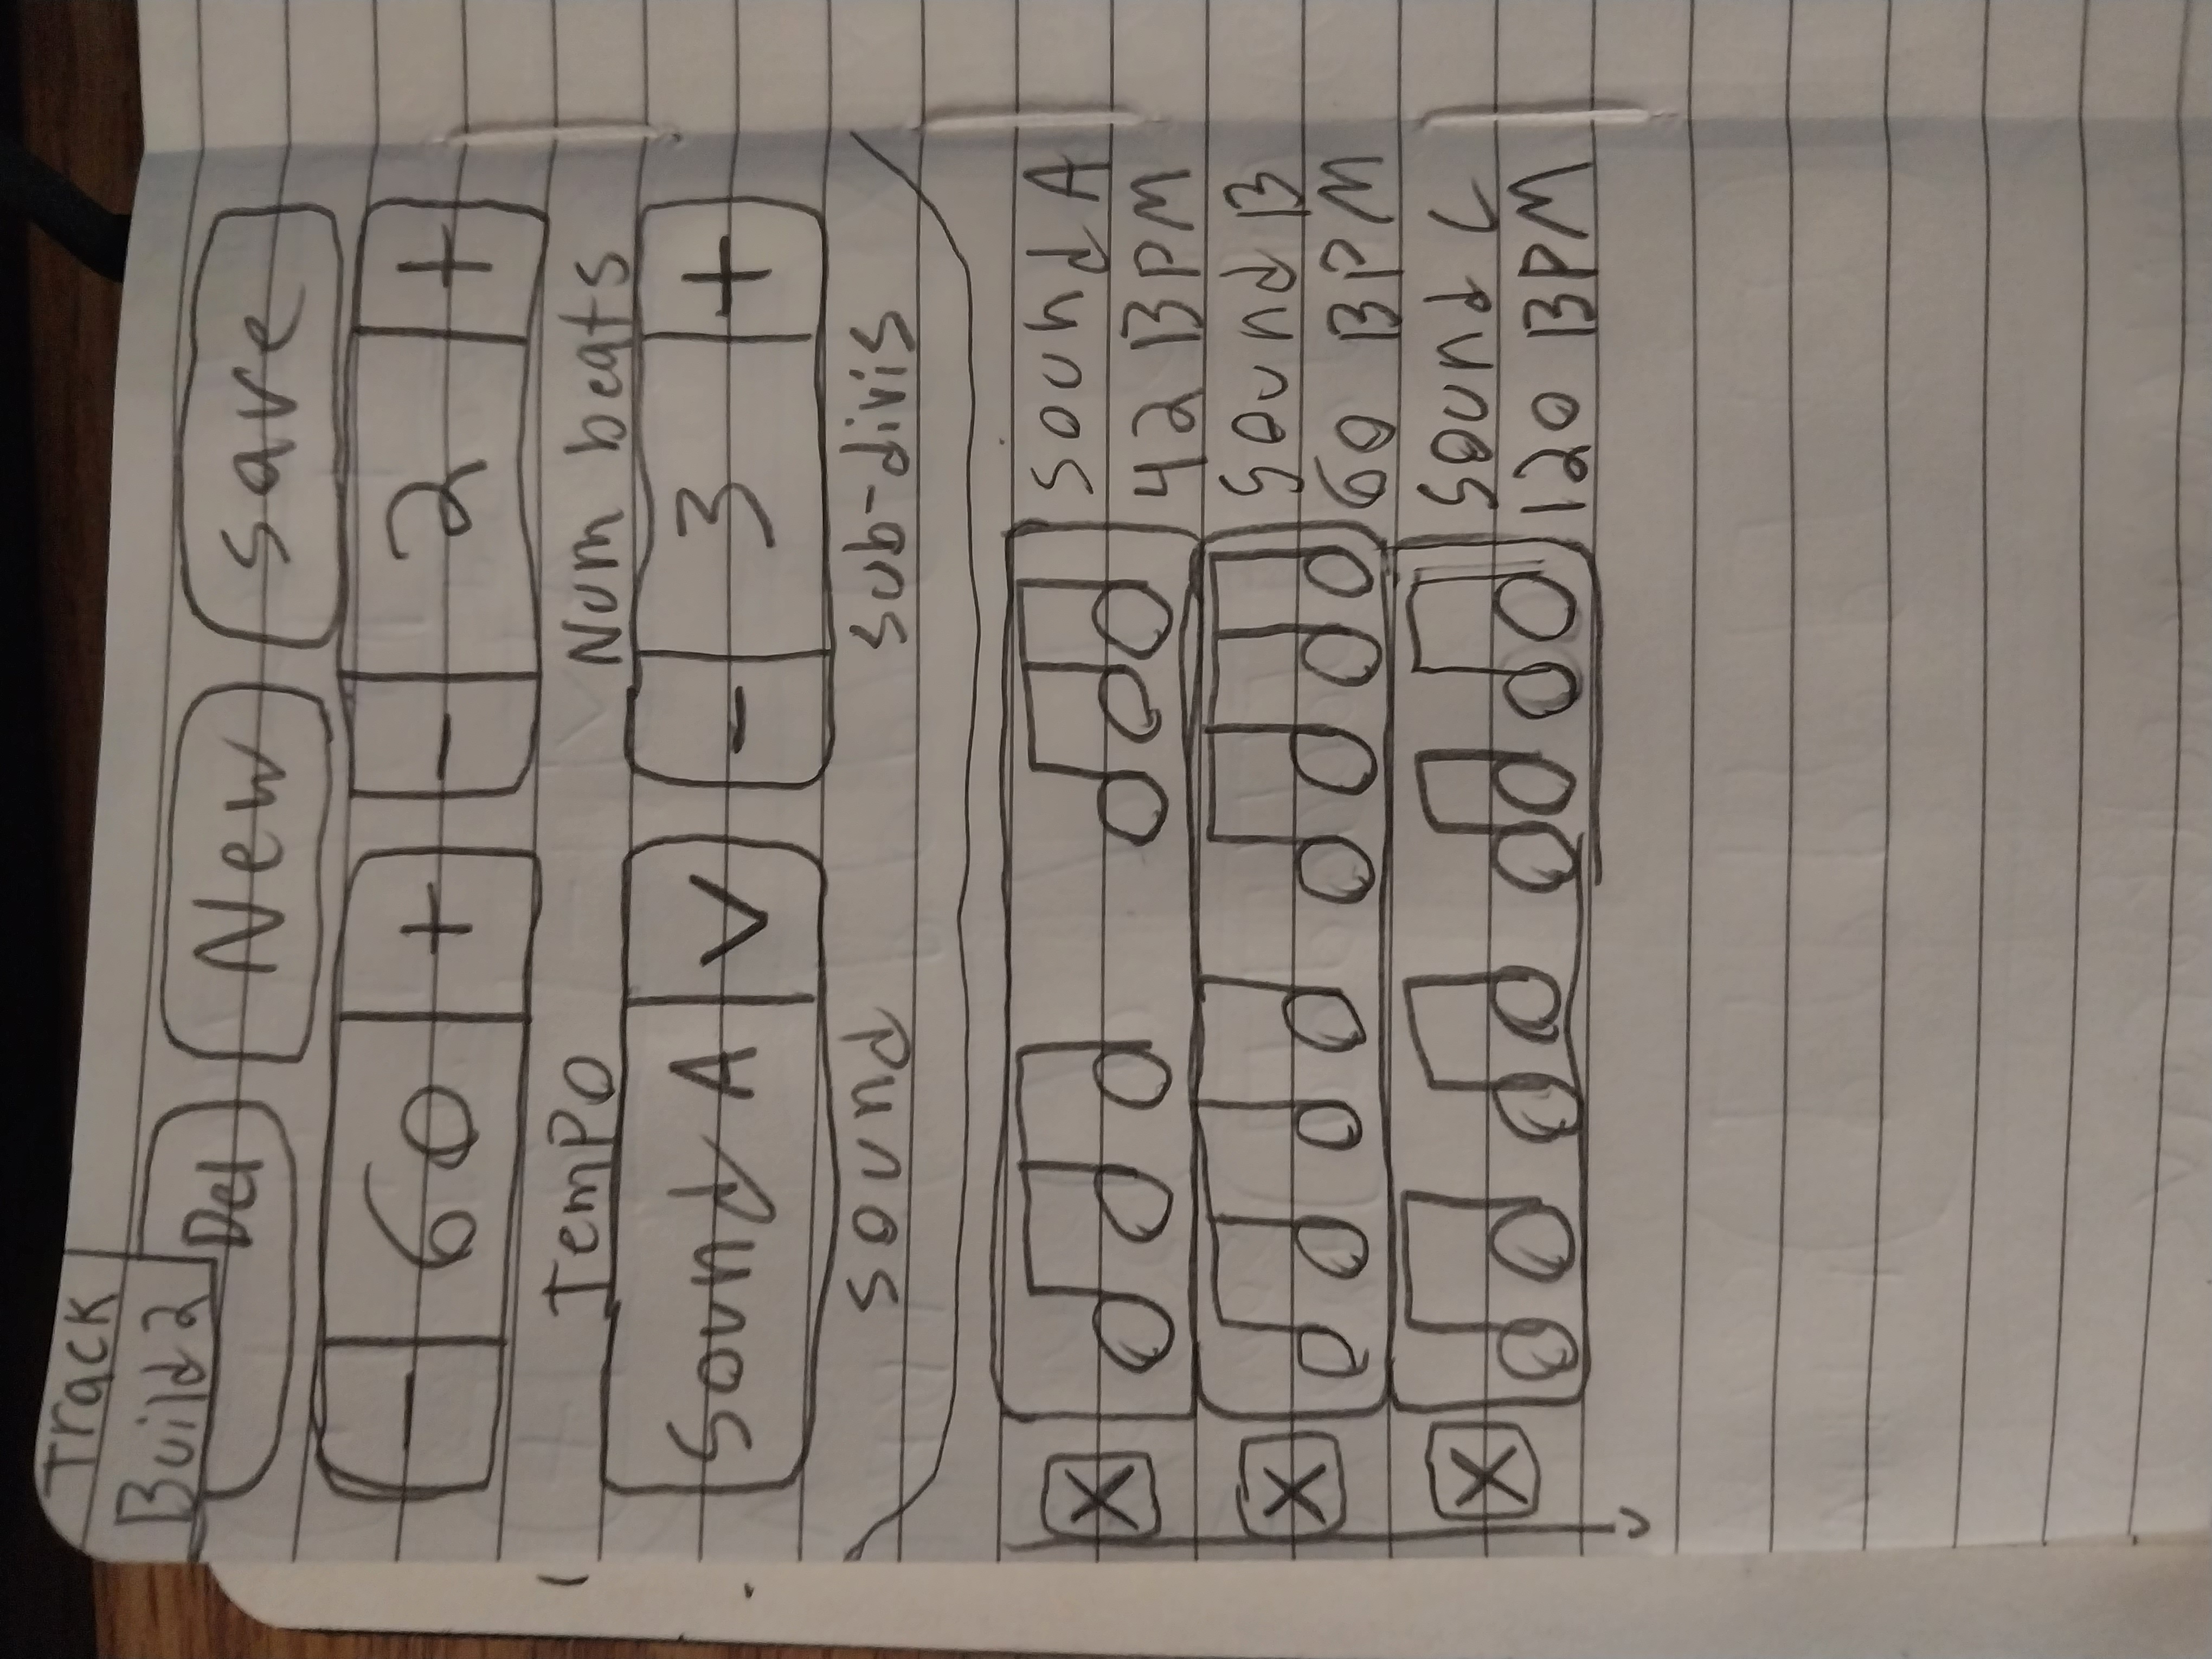 Track
Build 2
Del New Save
- 60 + - 2 +
Tempo Num beats
Sound A V - 3 +
Sound sub-divis
X Sound A
42 BPM
X Sound B
60 BPM
X Sound C
120 BPM